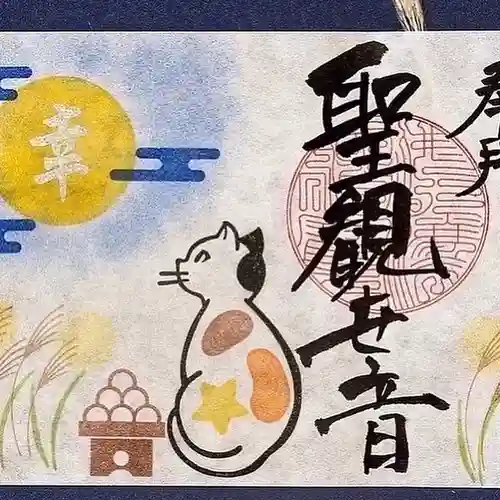 奉拝
聖観世音
幸